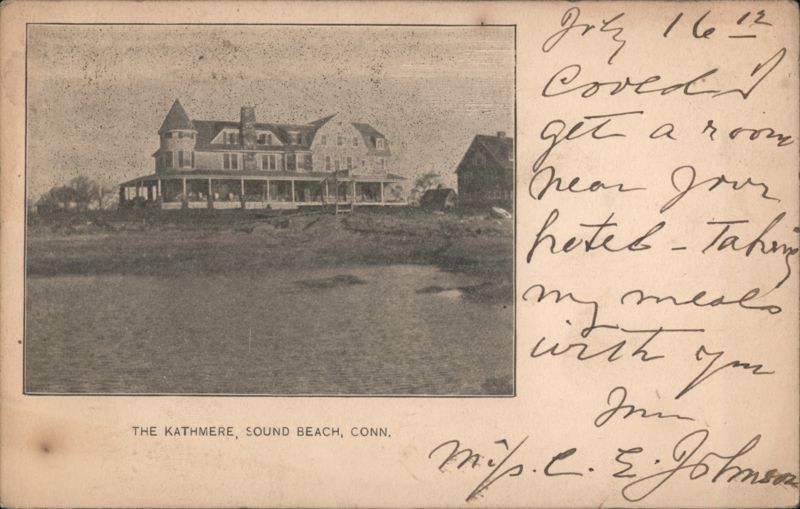 July 16 12
Could I
get a room
near your
hotel - Taking
my meals
with you
Mrs. C. E. Johnson
THE KATHMERE, SOUND BEACH, CONN.